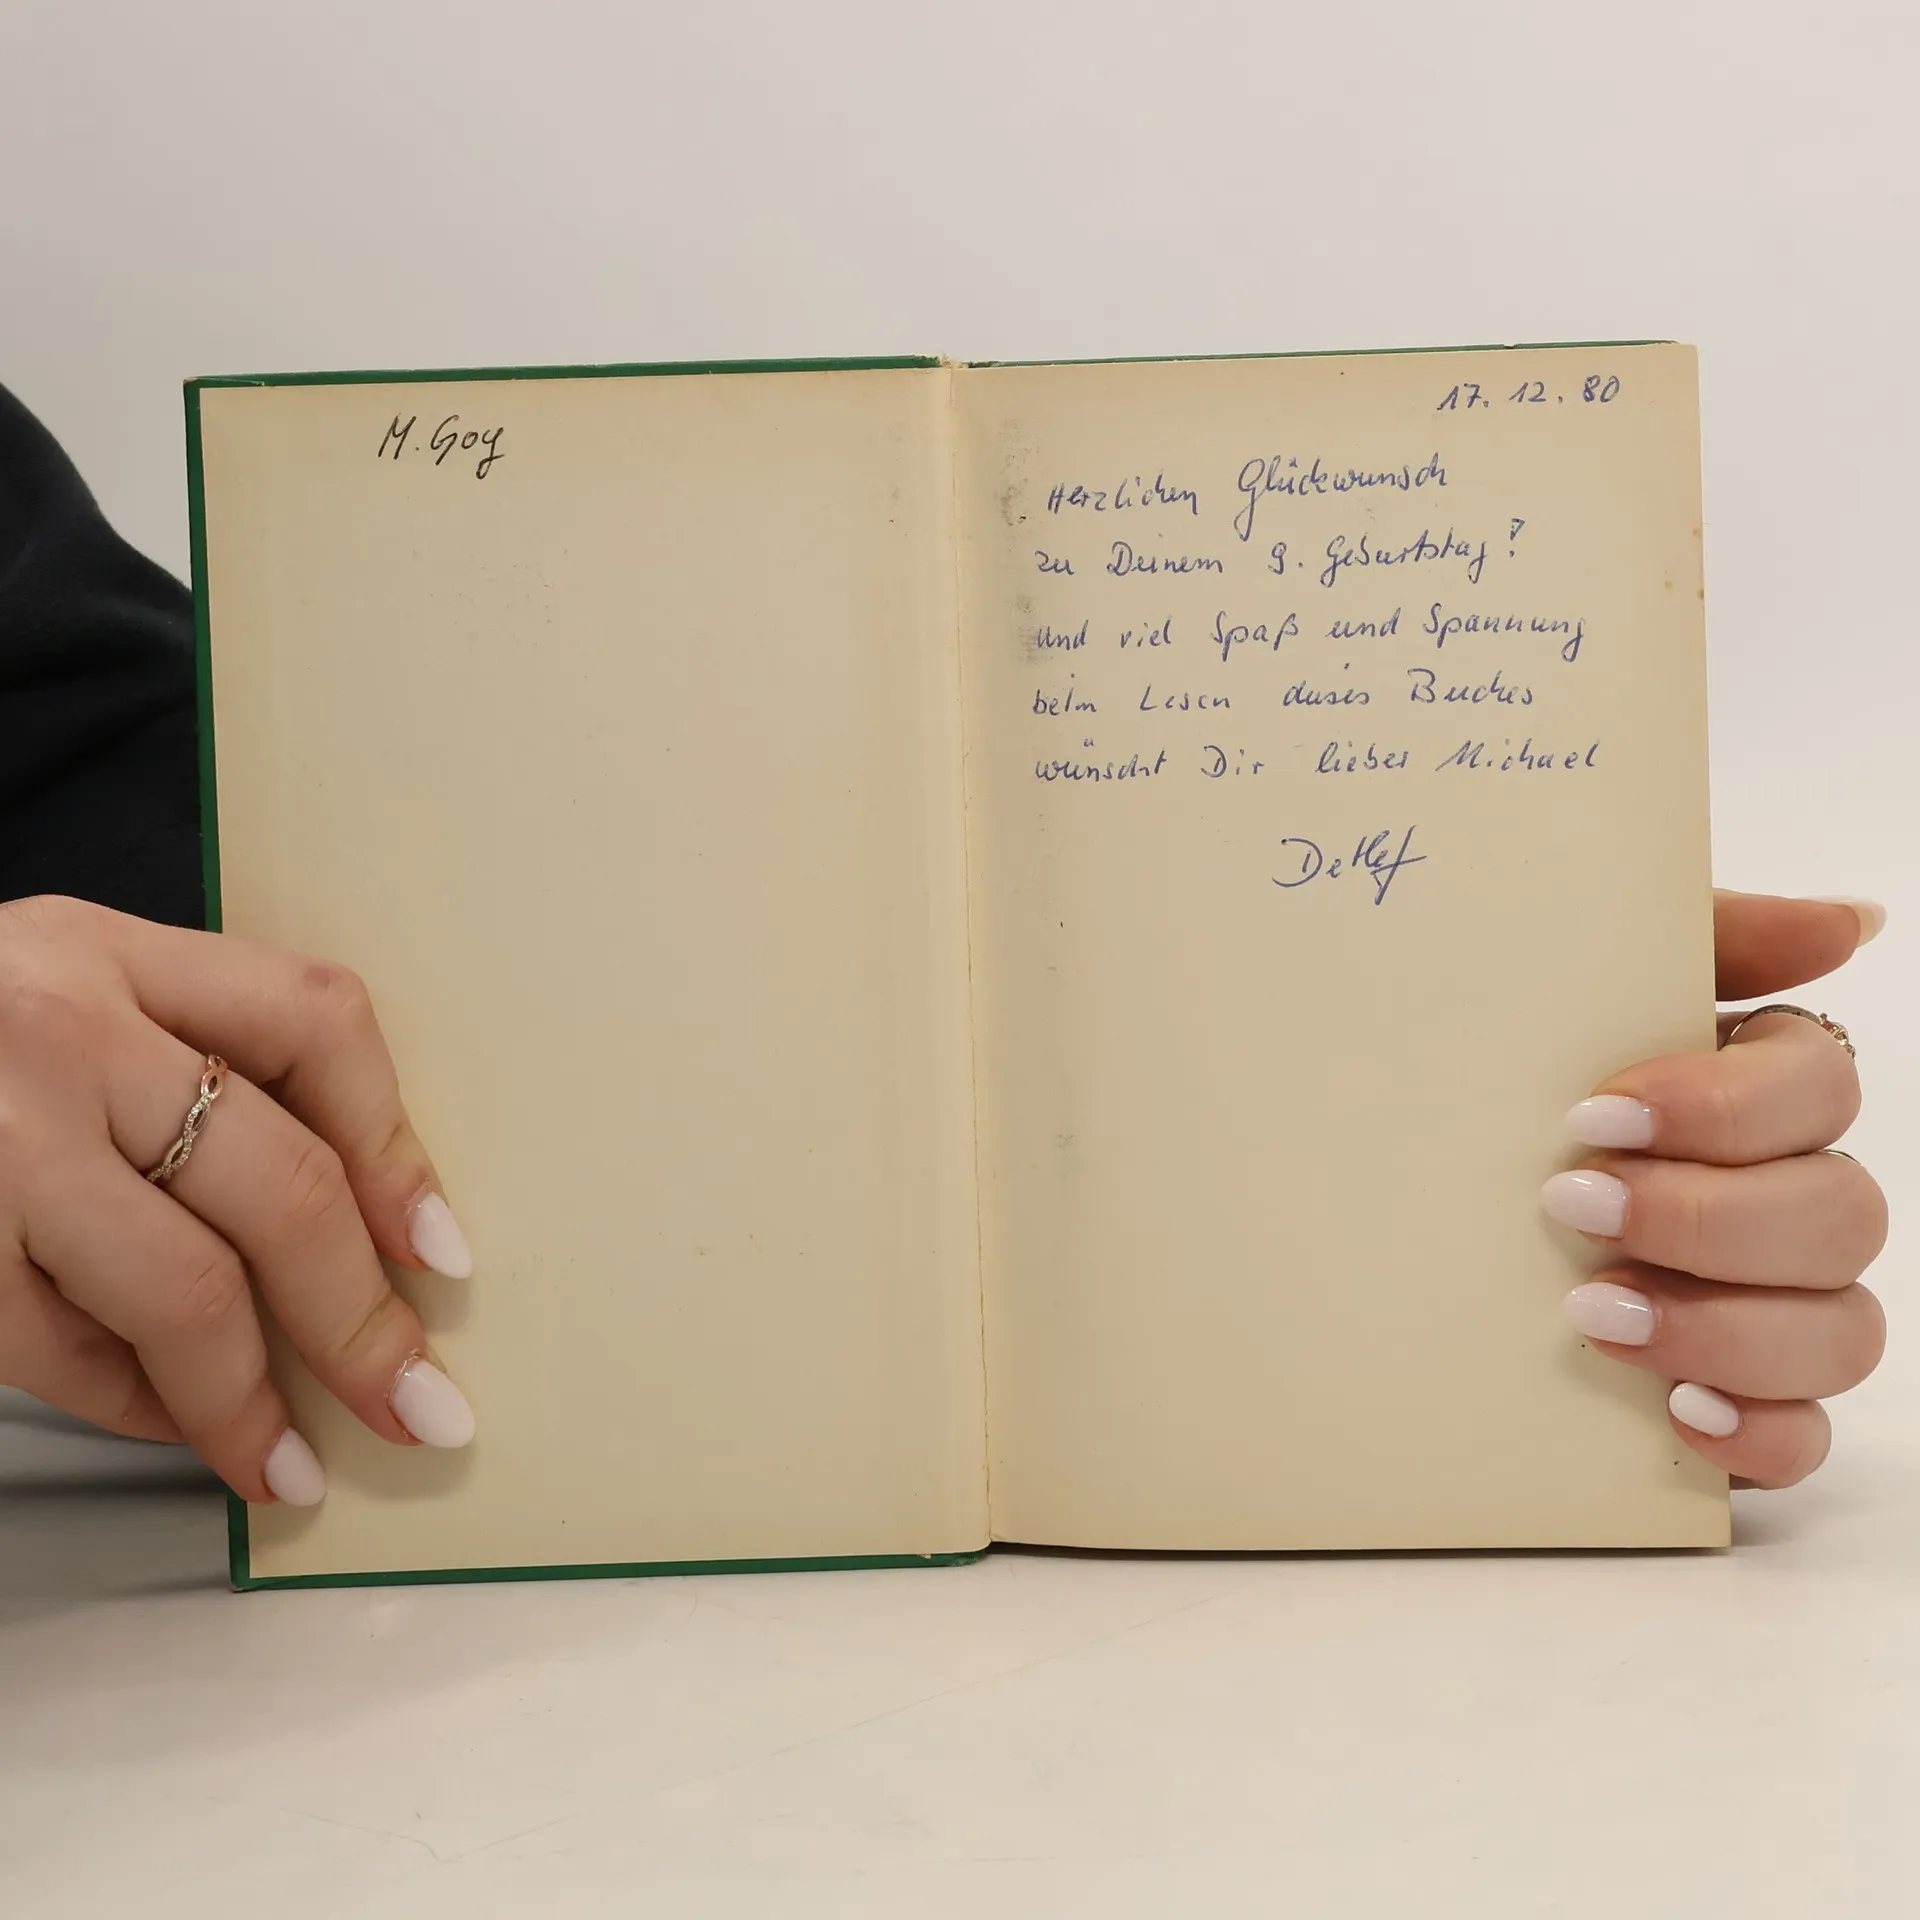 M. Goy
17. 12. 80
Herzlichen Glückwunsch
zu Deinem 9. Geburtstag!
und viel Spaß und Spannung
beim Lesen dieses Buches
wünscht Dir lieber Michael
Detlef